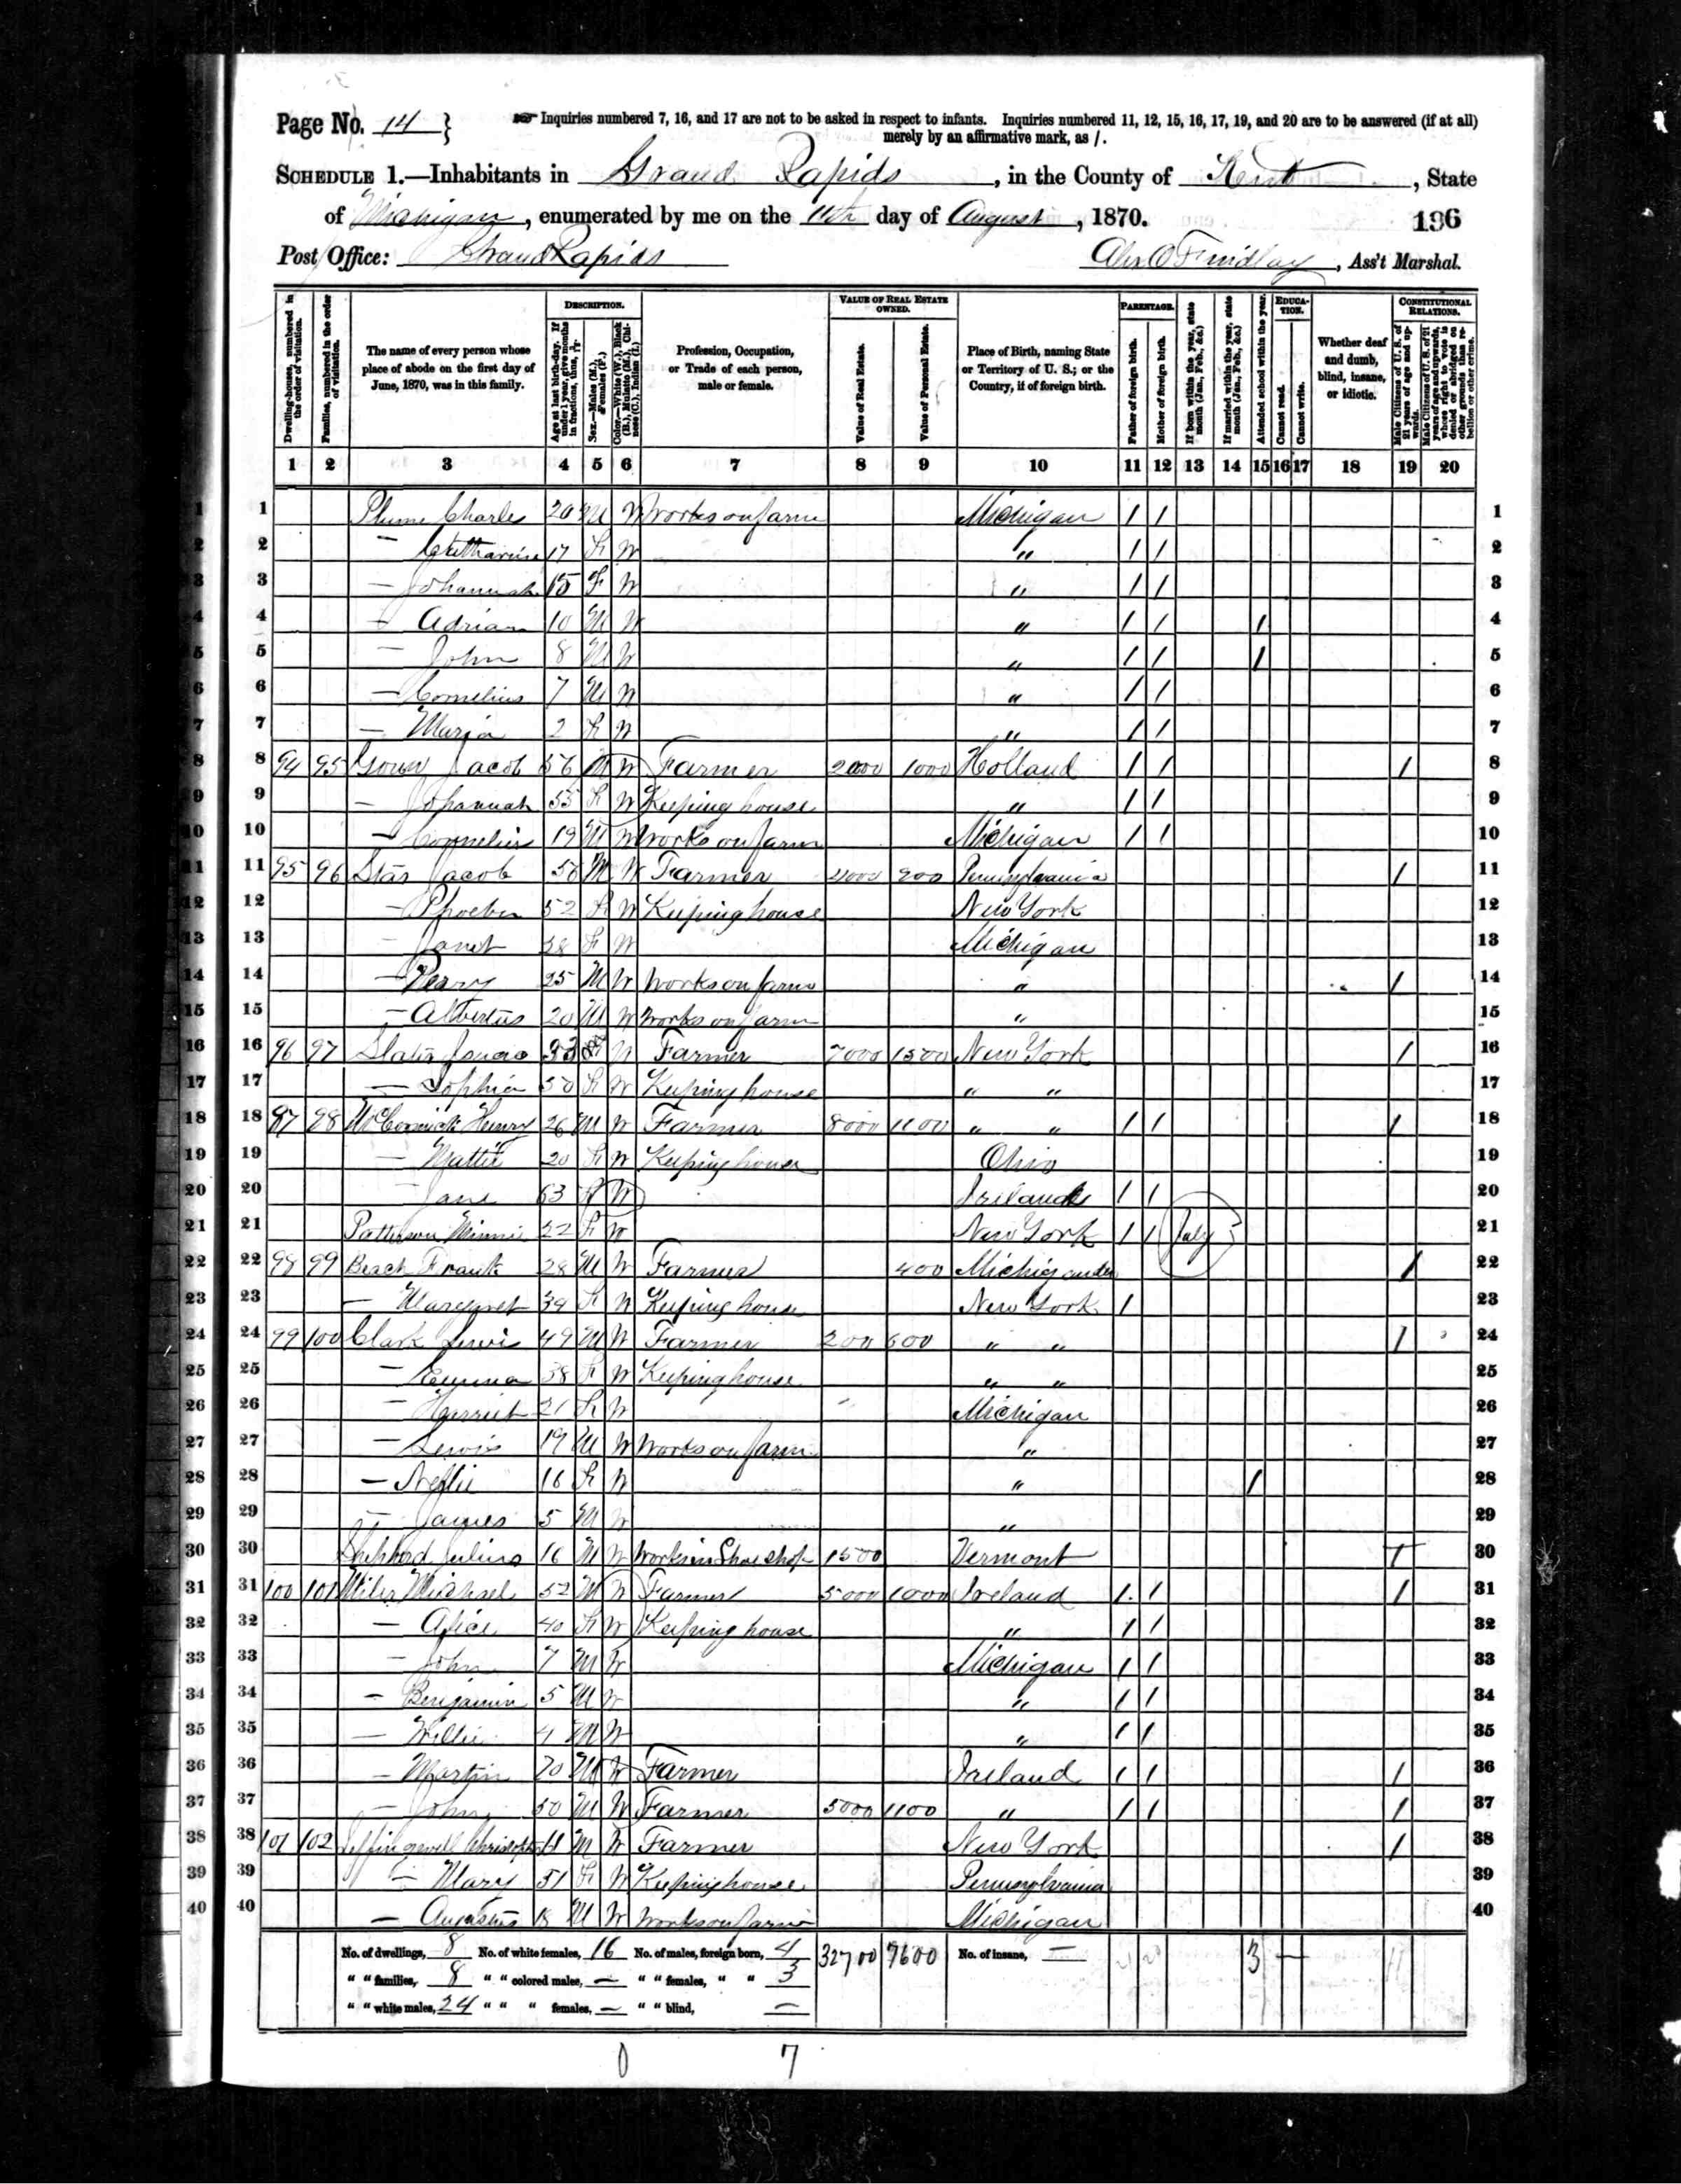 Page No. 14 }
☞ Inquiries numbered 7, 16, and 17 are not to be asked in respect to infants. Inquiries numbered 11, 12, 15, 16, 17, 19, and 20 are to be answered (if at all)
merely by an affirmative mark, as /.
SCHEDULE 1.—Inhabitants in Grand Rapids, in the County of Kent, State
of Michigan, enumerated by me on the 11th day of August, 1870.
196
Post Office: Grand Rapids
Findlay, Ass't Marshal.
Dwelling-houses, numbered in the order of visitation.
Families, numbered in the order of visitation.
The name of every person whose place of abode on the first day of June, 1870, was in this family.
DESCRIPTION.
Age at last birth-day. If under 1 year, give months in fractions, thus, 3/12
Sex.—Males (M.), Females (F.)
Color.—White (W.), Black (B.), Mulatto (M.), Chinese (C.), Indian (I.)
Profession, Occupation, or Trade of each person, male or female.
VALUE OF REAL ESTATE OWNED.
Value of Real Estate.
Value of Personal Estate.
Place of Birth, naming State or Territory of U. S.; or the Country, if of foreign birth.
PARENTAGE.
Father of foreign birth.
Mother of foreign birth.
If born within the year, state month (Jan., Feb., &c.)
If married within the year, state month (Jan., Feb., &c.)
Attended school within the year.
EDUCATION.
Cannot read.
Cannot write.
Whether deaf and dumb, blind, insane, or idiotic.
CONSTITUTIONAL RELATIONS.
Male Citizens of U. S. of 21 years of age and upwards.
Male Citizens of U. S. of 21 years of age and upwards, whose right to vote is denied or abridged on other grounds than rebellion or other crime.
1 2 3 4 5 6 7 8 9 10 11 12 13 14 15 16 17 18 19 20
1 Plume Charles 20 M W Works on farm Michigan / / 1
2 — Catharine 17 F W " / / 2
3 — Johannah 15 F W " / / 3
4 — Adrian 10 M W " / / / 4
5 — John 8 M W " / / / 5
6 — Cornelius 7 M W " / / 6
7 — Maria 2 F W " / / 7
8 94 95 Jacob 56 M W Farmer 2000 1000 Holland / / / 8
9 — Johannah 55 F W Keeping house " / / 9
10 — Cornelius 19 M W Works on farm Michigan / / 10
11 95 96 Star Jacob 58 M W Farmer 4000 900 Pennsylvania / 11
12 — Phoebe 52 F W Keeping house New York 12
13 — Janet 28 F W Michigan 13
14 — Perry 25 M W Works on farm " / 14
15 — Albertus 20 M W Works on farm " 15
16 96 97 Slater 53 W Farmer 7000 1500 New York / 16
17 — Sophia 50 F W Keeping house " " 17
18 97 98 McCormick Henry 26 M W Farmer 8000 1100 " " / / / 18
19 — Mattie 20 F W Keeping house Ohio 19
20 Jane 63 F W Ireland / / 20
21 Patterson Minnie 22 F W New York / / July 21
22 98 99 Frank 28 M W Farmer 400 Michigan / 22
23 — Margaret 39 F W Keeping house New York / 23
24 99 100 Clark Lewis 49 M W Farmer 200 600 " " / 24
25 — 38 F W Keeping house " " 25
26 — Harriet 21 F W Michigan 26
27 — Lewis 19 M W Works on farm " 27
28 — Nellie 16 F W " / 28
29 — James 5 M W " 29
30 Shepherd Julius 16 M W Works in Shoe shop 1500 Vermont 30
31 100 101 Michael 52 M W Farmer 5000 1000 Ireland / / / 31
32 — Alice 40 F W Keeping house " / / 32
33 — John 7 M W Michigan / / 33
34 — Benjamin 5 M W " / / 34
35 — Willie 4 M W " / / 35
36 — Martin 70 M W Farmer Ireland / / / 36
37 — John 50 M W Farmer 5000 1100 " / / / 37
38 101 102 Leffingwell Christopher 61 M W Farmer New York / 38
39 — Mary 51 F W Keeping house Pennsylvania 39
40 — Augustus 18 M W Works on farm Michigan 40
No. of dwellings, 8 No. of white females, 16 No. of males, foreign born, 4 32700 7600 No. of insane, — 3 —
" " families, 8 " " colored males, — " " females, " " 3
" " white males, 24 " " " females, — " " blind, —
7